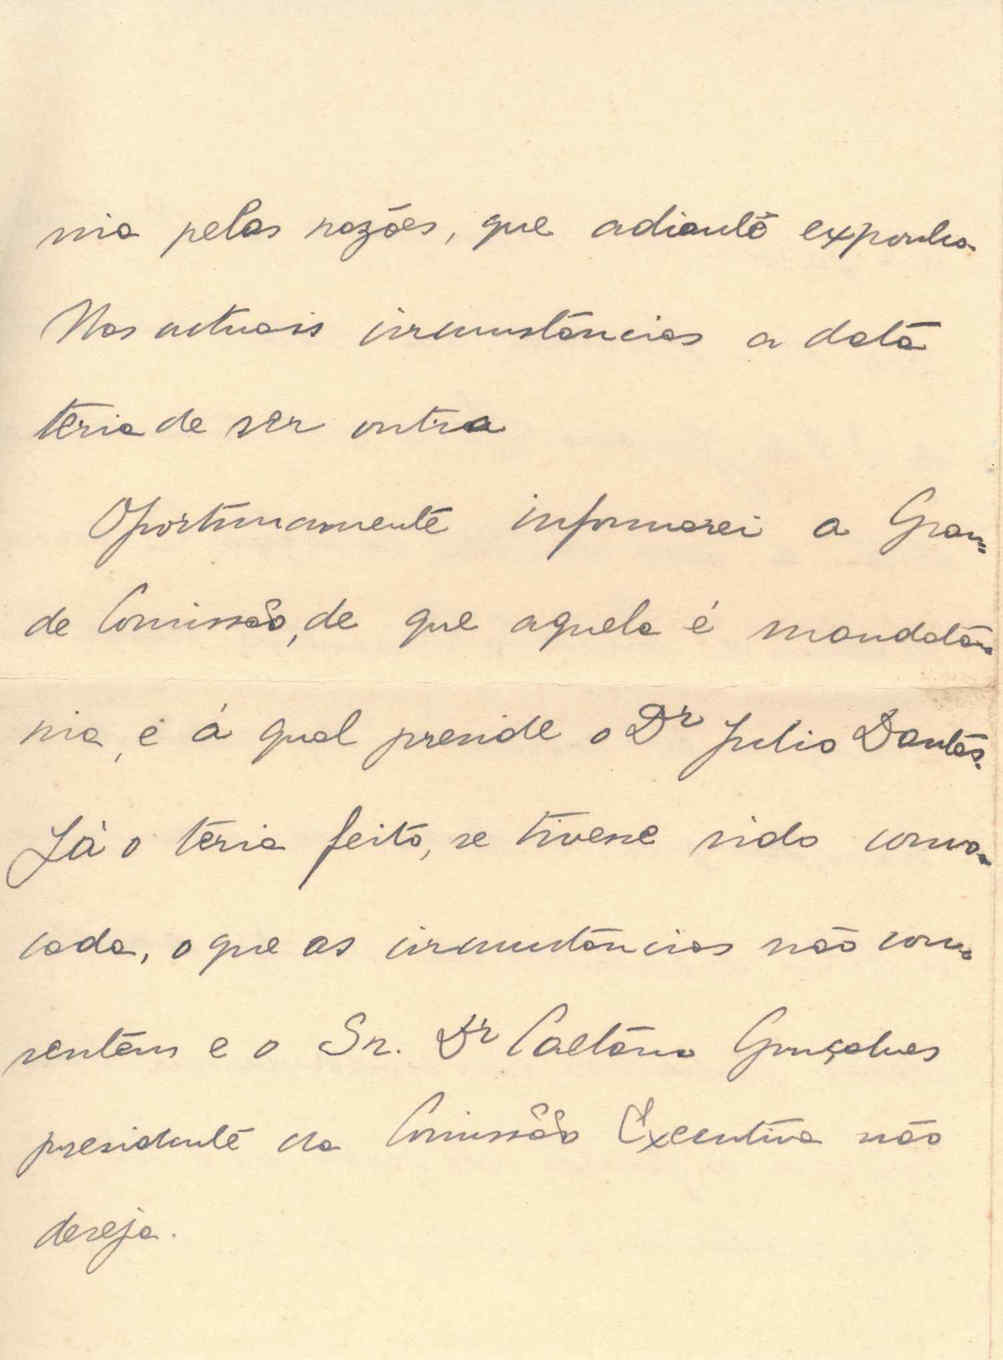 nia pelas razões, que adiante exponho.
Nas actuais circunstâncias a data
teria de ser outra
Oportunamente informarei a Gran=
de Comissão, de que aquela é mandatá-
ria, e á qual preside o Dr Julio Dantas.
Já o teria feito, se tivesse sido convo-
cada, o que as circunstâncias não con-
sentem e o Sr. Dr Caetano Gonçalves
presidente da Comissão Executiva não
deseja.